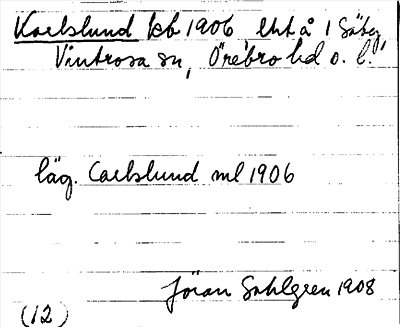 Karlslund kb 1906 lht å 1 Säby,
Vintrosa sn, Örebro hd o. l.
läg. Carlslund ml 1906
Jöran Sahlgren 1908
(12)